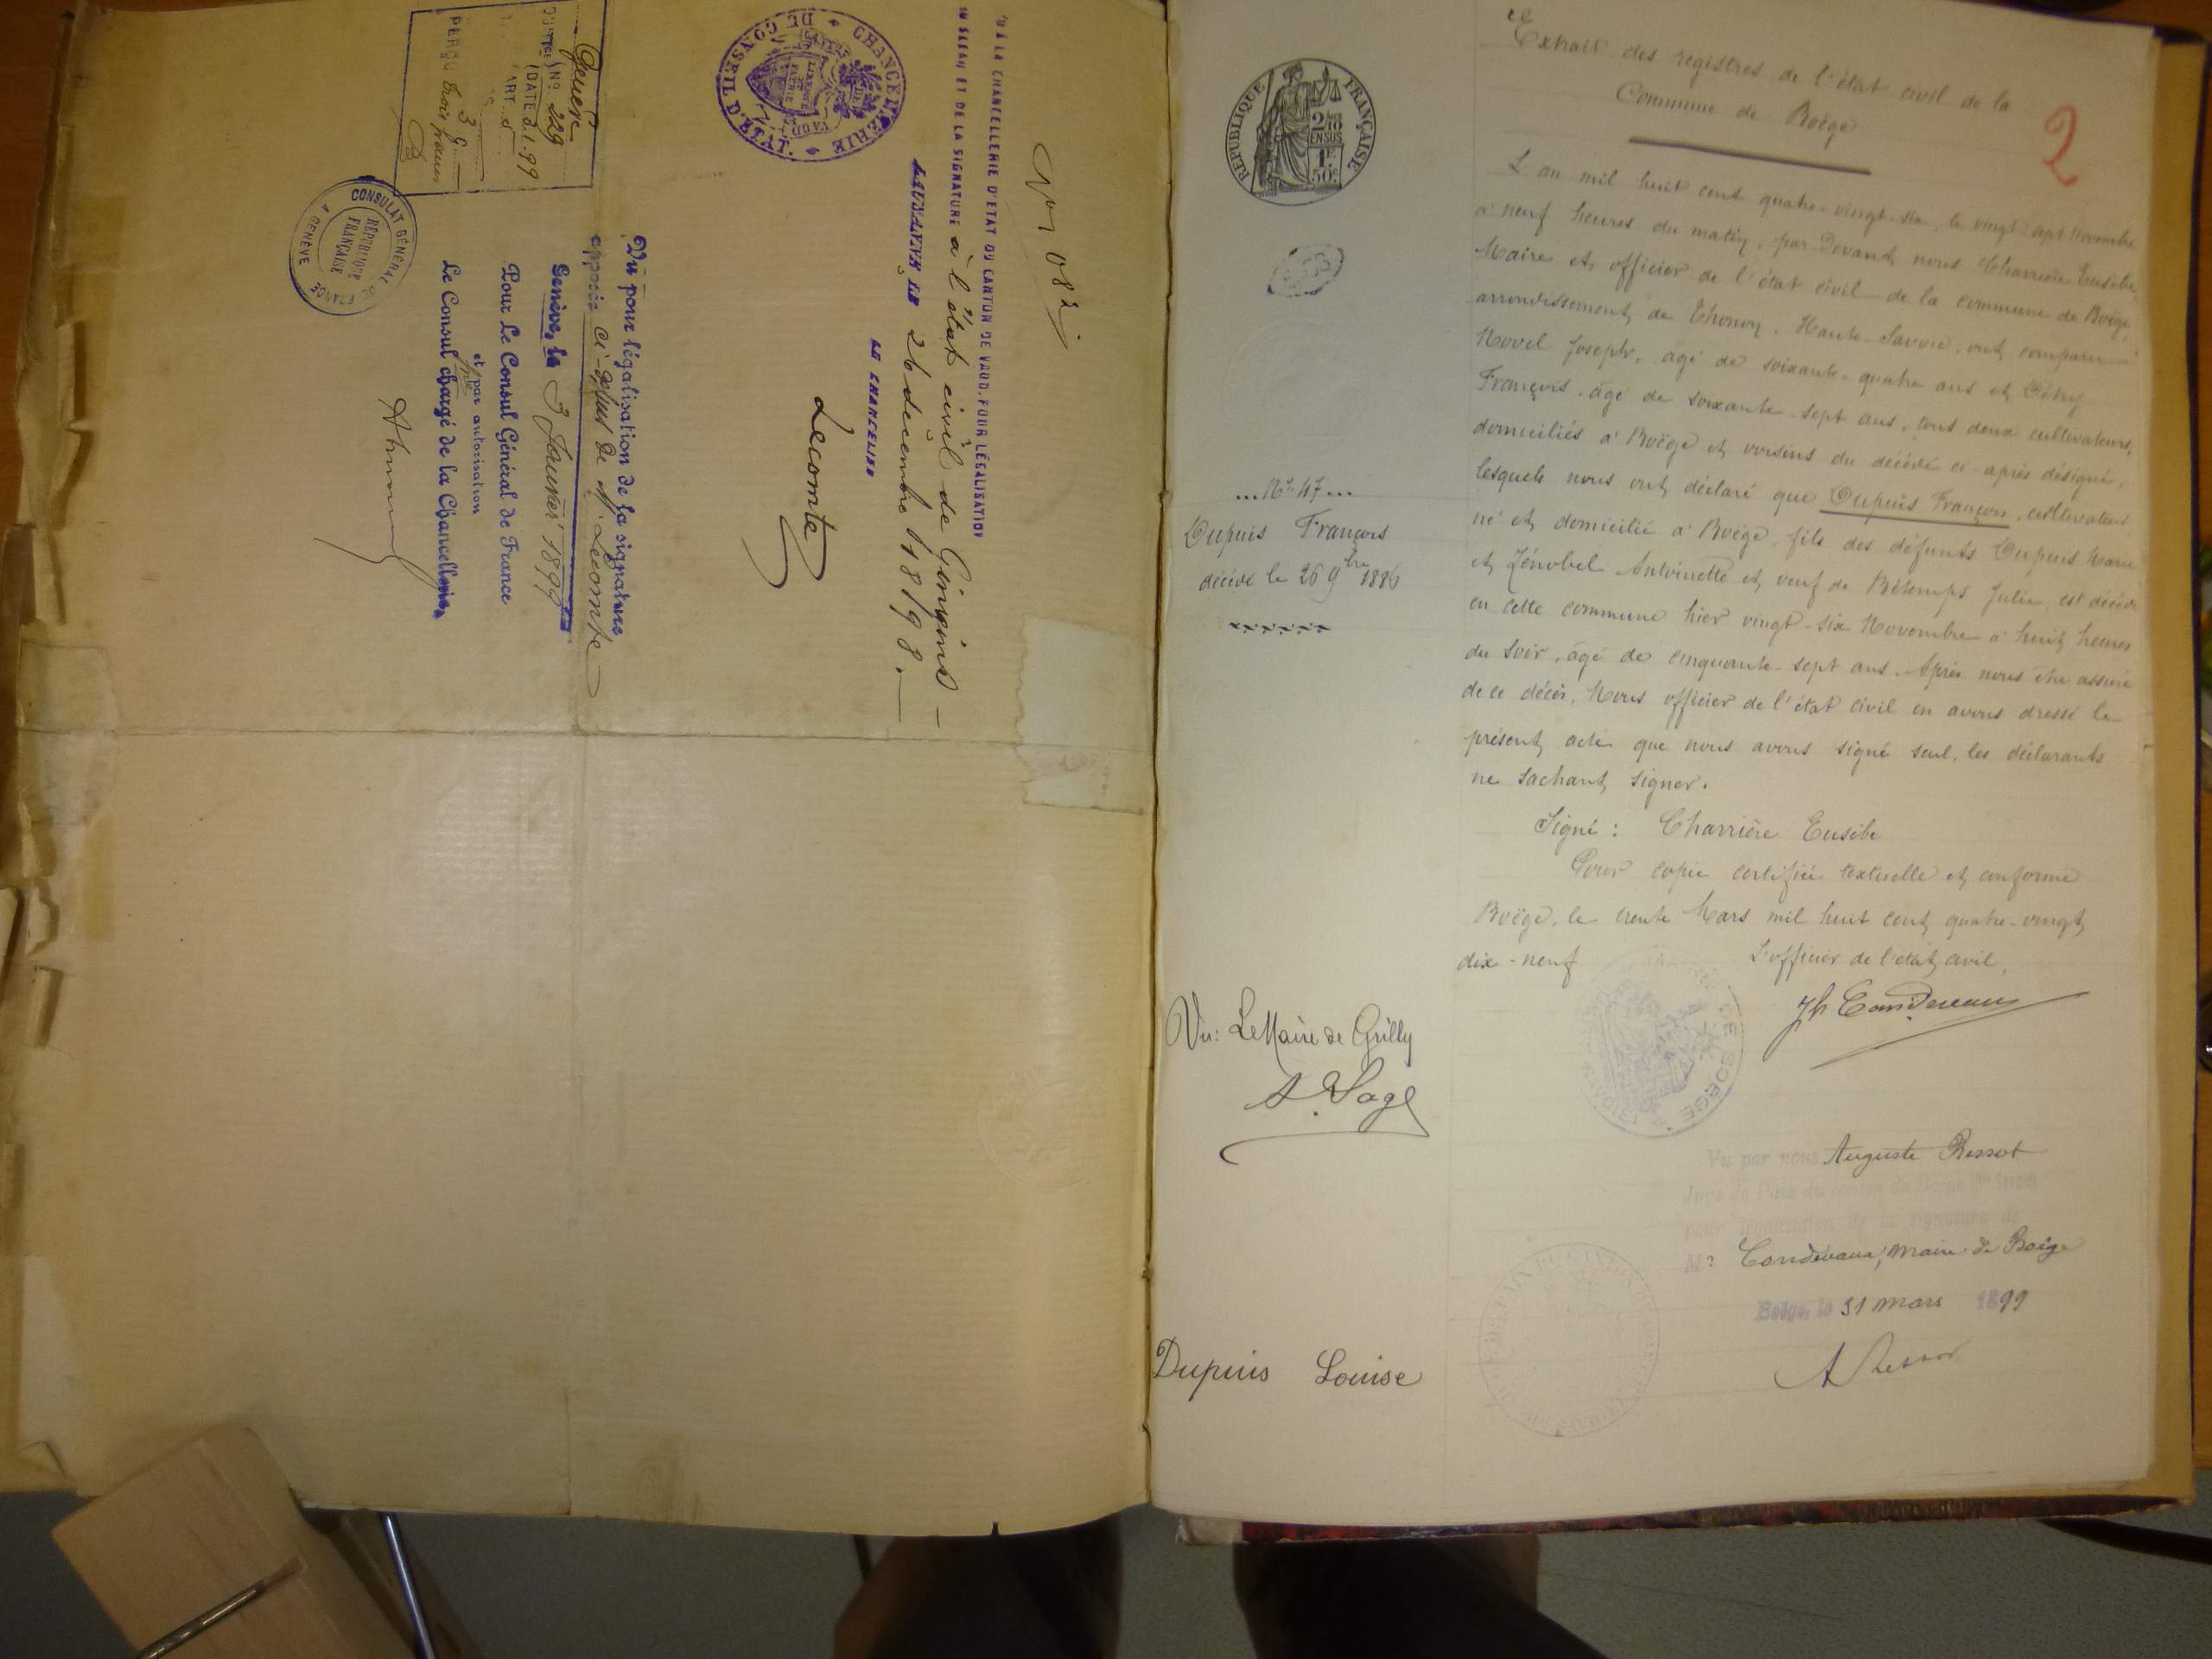 VU A LA CHANCELLERIE D'ETAT DU CANTON DE VAUD, POUR LÉGALISATION
DU SCEAU ET DE LA SIGNATURE à l'état civil de Gingins —
LAUSANNE LE 26 décembre 1898. —
LE CHANCELIER
Lecomte
CHANCELLERIE
DU CONSEIL D'ETAT.
LIBERTÉ ET PATRIE
Vu pour légalisation de la signature
apposée ci-dessus de M. Lecomte
Genève, le 3 Janvier 1899
Pour Le Consul Général de France
et par autorisation
Le Consul chargé de la Chancellerie
CONSULAT GÉNÉRAL DE FRANCE
A GENÈVE
RÉPUBLIQUE
FRANÇAISE
Genève
N° 229
DATE 3.1.99
ART. 5
PERÇU trois francs
2
Extrait des registres de l'état civil de la
Commune de Boëge
RÉPUBLIQUE FRANÇAISE
2/10
EN SUS
1F
50c
L'an mil huit cent quatre-vingt-six, le vingt-sept Novembre
à neuf heures du matin, par devant nous Charrière Eusèbe,
Maire et officier de l'état civil de la commune de Boëge,
arrondissement de Thonon, Haute-Savoie, ont comparu
Novel Joseph, âgé de soixante-quatre ans et Détry
François, âgé de soixante-sept ans, tous deux cultivateurs,
domiciliés à Boëge et voisins du décédé ci-après désigné,
lesquels nous ont déclaré que Dupuis François, cultivateur,
né et domicilié à Boëge, fils des défunts Dupuis Marie
et Zénobel Antoinette et veuf de Bétemps Julie, est décédé
en cette commune hier vingt-six Novembre à huit heures
du soir, âgé de cinquante-sept ans. Après nous être assuré
de ce décès, Nous officier de l'état civil en avons dressé le
présent acte que nous avons signé seul, les déclarants
ne sachant signer.
Signé : Charrière Eusèbe
...N° 47...
Dupuis François
décédé le 26 9bre 1886
Pour copie certifiée textuelle et conforme
Boëge, le trente Mars mil huit cent quatre-vingt
dix-neuf
L'officier de l'état civil,
Jh Condevaux
Vu: Le Maire de Grilly
Vu par nous Auguste Ressot
Juge de Paix du canton de Boëge (Hte Savoie)
pour légalisation de la signature de
Mr Condevaux, maire de Boëge
Boëge, le 31 mars 1899
A Ressot
Dupuis Louise